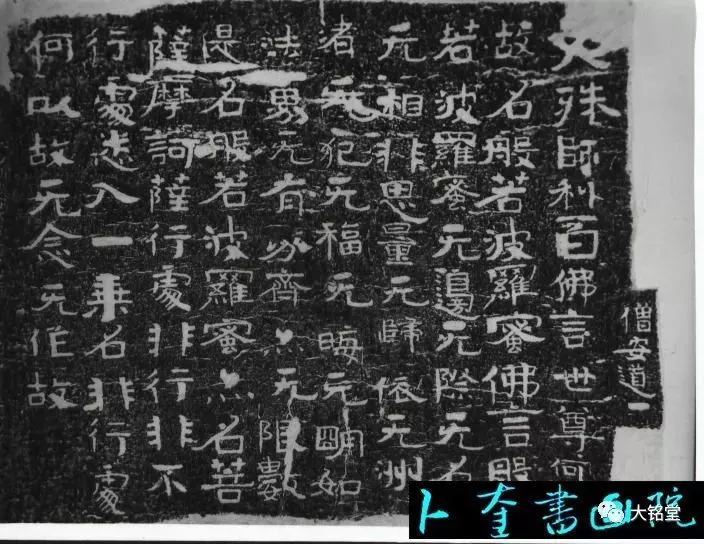 僧安道一
文殊師利白佛言世尊何
故名般若波羅蜜佛言般
若波羅蜜无邊无際无名
无相非思量无歸依无洲
渚无犯无福无晦无明如
法界无有分齊亦无限數
是名般若波羅蜜亦名菩
薩摩訶薩行處非行非不
行處悉入一乘名非行處
何以故无念无作故
卜奎書画院
大铭堂